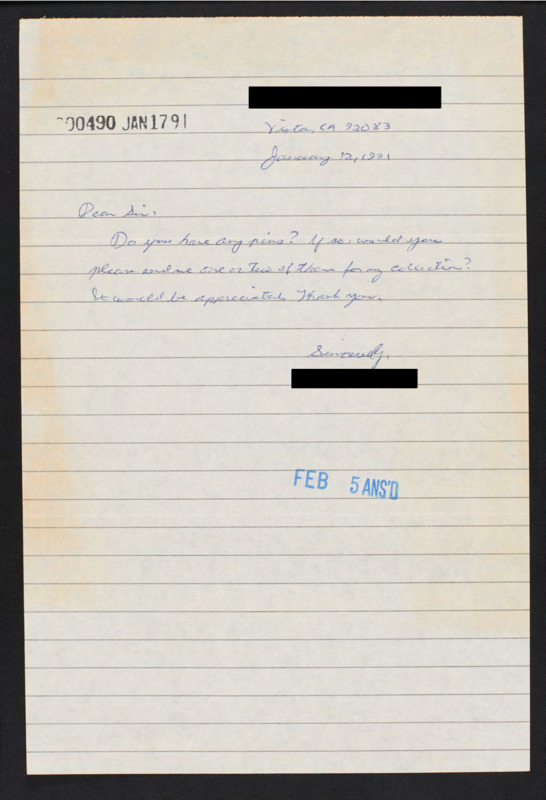 00490 JAN1791
Vista, CA 92083
January 12, 1991
Dear Sir:
Do you have any pins? If so, would you
please send me one or two of them for my collection?
It would be appreciated. Thank you.
Sincerely,
FEB 5 ANS'D